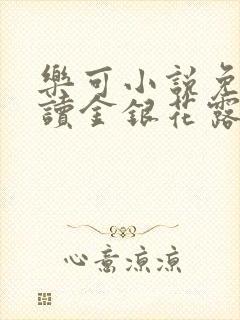 樂可小說免
讀金銀花露
心意涼涼